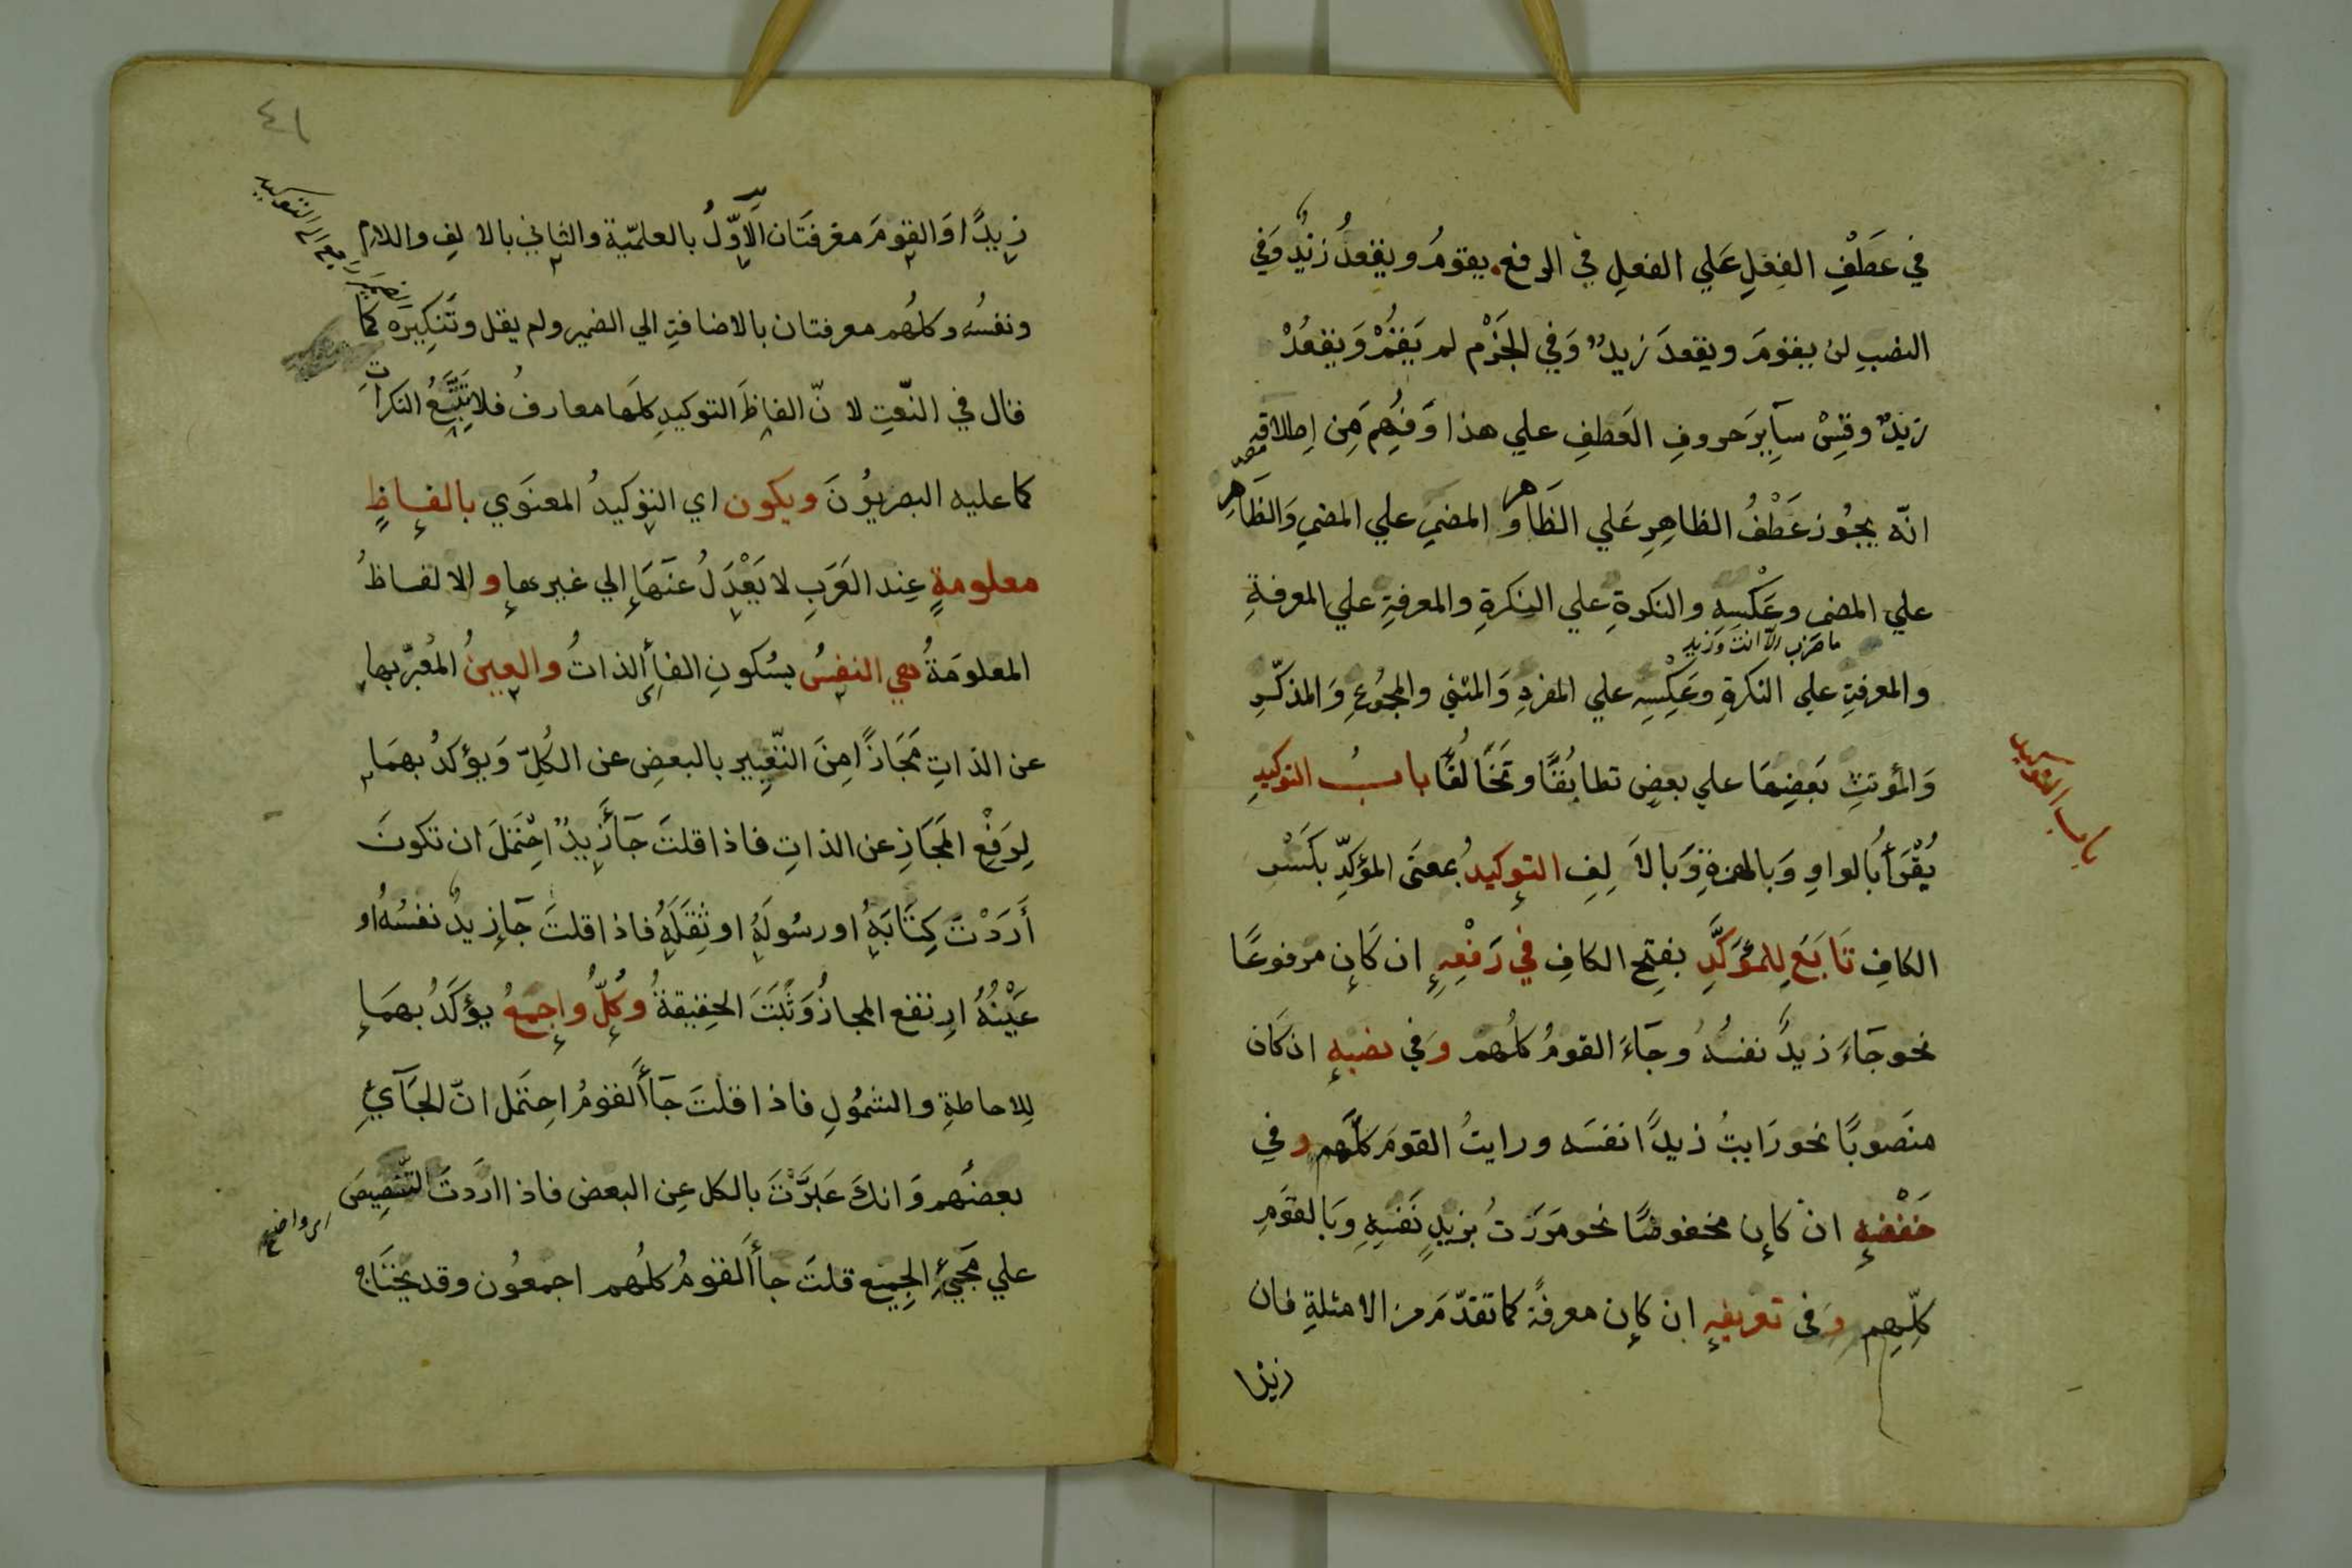 في عَطْفِ الفِعْلِ عَلي الفعلِ في الرفع يقومُ ويقعدُ زيدٌ وَفي
النصبِ لن يقومَ ويقعدَ زيدٌ وَفي الجَزْم لم يَقُمْ وَيقعُدْ
زيدٌ وقِسْ سآيِرَ حروفِ العَطفِ علي هذا وَفُهِمَ مِن اِطلاقِه
انّه يجُوز عَطْفُ الظاهِرِ عَلي الظَاهر و المضمرِ علي المضمرِ وَالظَاهِرِ
علي المضمر وعَكْسِه والنكرةِ علي النكرةِ والمعرفةِ علي المعرفةِ
ما ضرب الّا انت وَزيد
والمعرفةِ علي النكرةِ وعَكِسِه علي المفردِ وَالمثني والمجمُوعِ وَالمذكّرِ
وَالمؤنثِ بَعضِهَا علي بعضٍ تطابُقًا وتَخَالُفًا بابُ التوكيدِ
باب التوكيد
يُقْرَأ بالواوِ وَبالهمزةِ وَبالاَلِفِ التوكيدُ بمعنَي المؤكِّدِ بكَسْرِ
الكافِ تَابَع لِلمُؤَكَّدِ بفتحِ الكافِ في رَفْعِهِ ان كَان مرفوعًا
نحو جَاءَ زيدٌ نفسُهُ وجَاءَ القومُ كلُهم وَفي نصبِهِ ان كَان
منَصوبًا نحو رَايتُ زيدًا نفسَه ورايتُ القومَ كلَّهم وفي
خَفْضِهِ انْ كان مخفوضًا نحو مَرَرْتُ بزيدٍ نَفسِهِ وَبالقَومِ
كلِّهِم وَفي تعريفِهِ ان كان معرفةً كما تقدّمَ من الامثلةِ فان
زيدًا
٤١
زيدًا وَالقومَ معرفَتَان الاَوّلُ بالعلميّة والثاني بالالِفِ واللام
الضمير راجع الي التوكيد
ونفسُه وكلهُم معرفتان بالاضافةِ الي الضمير ولم يقل وتَنكِيرَه كما
قال في النّعتِ لانّ الفاظَ التوكيدِ كلهَا معارفُ فلا تتبَعُ النكراتِ
كما عليه البصريوُنَ ويكون اي التوكيدُ المعنَوي بالفاظٍ
معلومةٍ عِند العَرَبِ لا يَعْدِلُ عنَهَا الي غيرها والالفاظُ
المعلومَةُ هي النفسُ بسُكونِ الفا اي الذاتُ والعينُ المُعبَرّبها
عن الذاتِ مَجَازًا مِنَ التّعبِيرِ بالبعضِ عن الكُلِّ وَيؤكدُ بهمَا
لِرَفْعِ المَجَازِ عن الذاتِ فاذا قلتَ جَآ زيدٌ احِتَملَ ان تكونَ
أَرَدْتَ كِتَابَهُ اورسُولَهُ اوثِقَلَهُ فاذا قلتَ جَا زيدٌ نفسُهُ او
عَيْنُهُ ارتفع المجازُ وَثبَتَ الحقيقةُ وَكلُّ واجمَعُ يؤكَدُ بهمَا
لِلاحاطةِ والشمُولِ فاذا قلتَ جَآ القومُ احتَمل انّ الجَآئي
بعضُهم وَانكَ عَبَرّتَ بالكل عِن البعض فاذا اردتَ التّنصِيصَ
علي مَجيءِ الجميع قلتَ جا القومُ كلُهم اجمعُون وقد يحتَاج